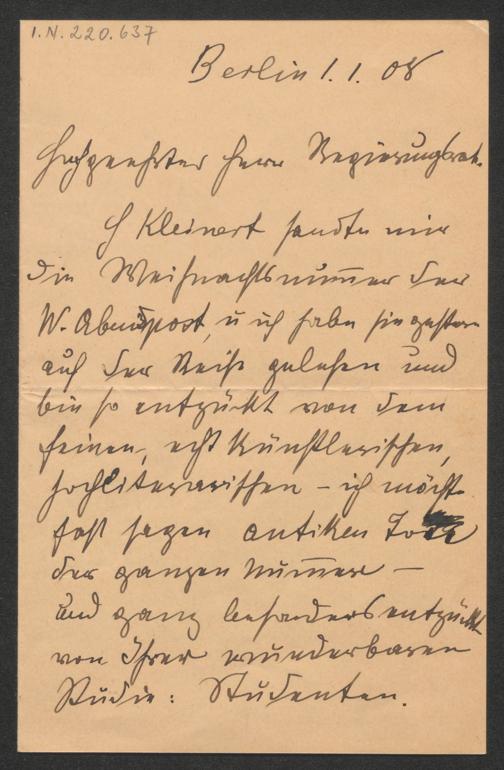 I.N. 220.637
Berlin 1.1.08
Hochgeehrter Herr Regierungsrat.
H Kleinert sandte mir
die Weihnachtsnum̄er der
W. Abendpost, u ich habe sie gestern
auf der Reise gelesen und
bin so entzückt von dem
feinen, echt künstlerischen,
hochliterarischen – ich möcht
fast sagen antiken
der ganzen Num̄er –
und ganz besonders entzückt
von Ihrer wunderbaren
Studie: Studenten.